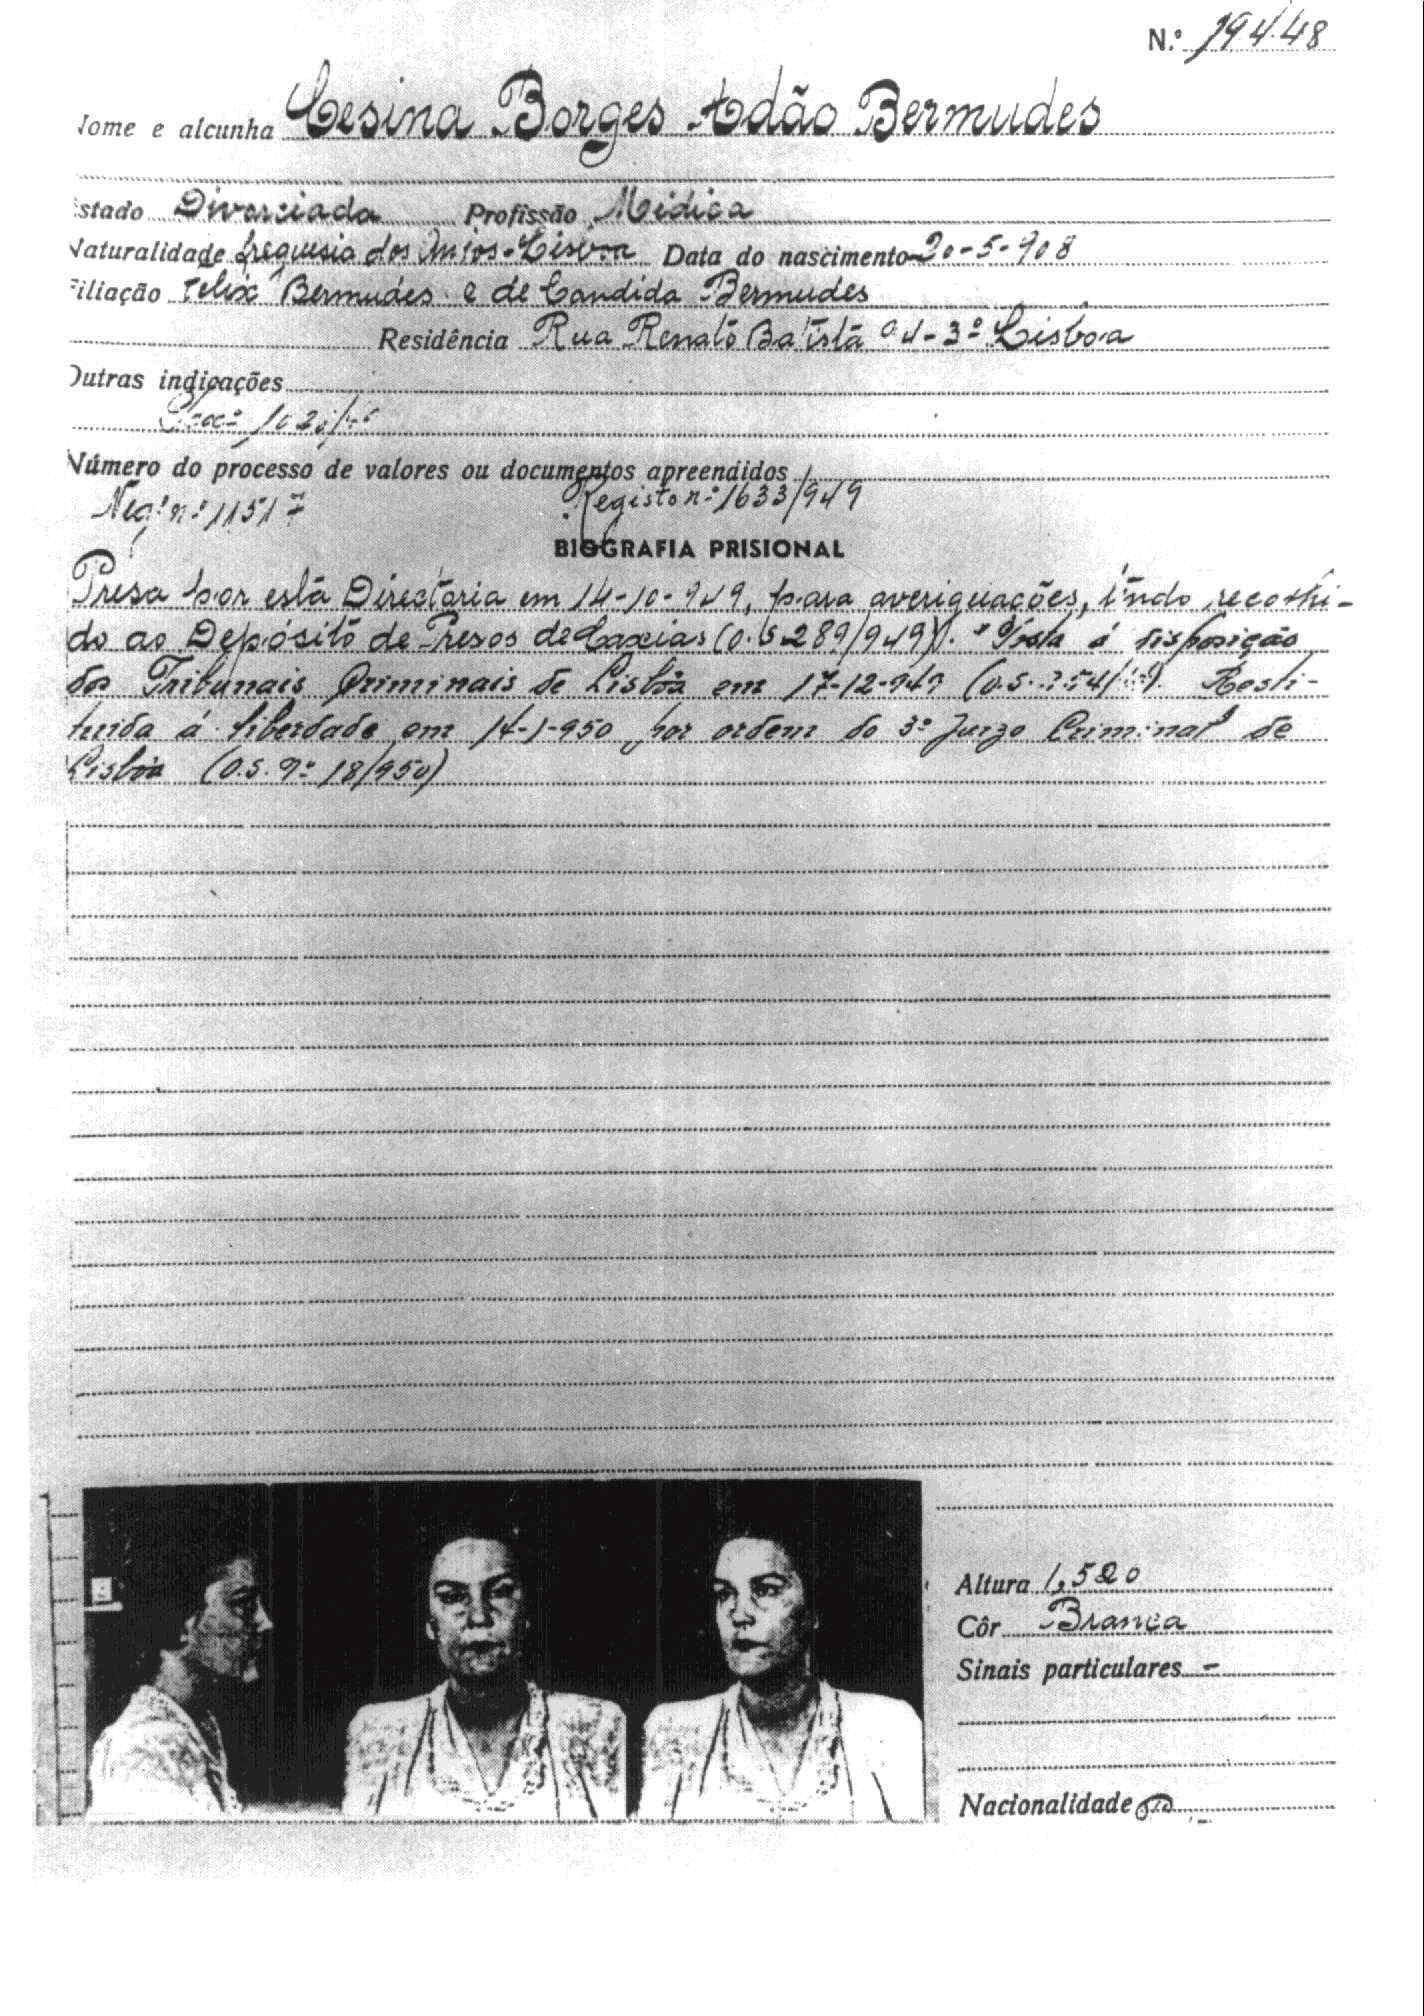 N.º 19448
Nome e alcunha Cesina Borges Adão Bermudes
Estado Divorciada Profissão Médica
Naturalidade freguesia dos Anjos-Lisboa Data do nascimento 20-5-908
Filiação Felix Bermudes e de Candida Bermudes
Residência Rua Renato Batista 4-3º Lisboa
Outras indicações
Número do processo de valores ou documentos apreendidos
Neg. nº 11517 Registo nº 1633/949
BIOGRAFIA PRISIONAL
Presa por esta Directoria em 14-10-949, para averiguações, indo recolhi-
do ao Depósito de Presos de Caxias (O.S 289/949). Posta á disposição
dos Tribunais Criminais de Lisboa em 17-12-949 (O.S. Resti-
tuida á liberdade em 14-1-950, por ordem do 3º Juizo Criminal de
Lisboa (O.S. nº 18/950)
Altura 1,520
Côr Branca
Sinais particulares -
Nacionalidade